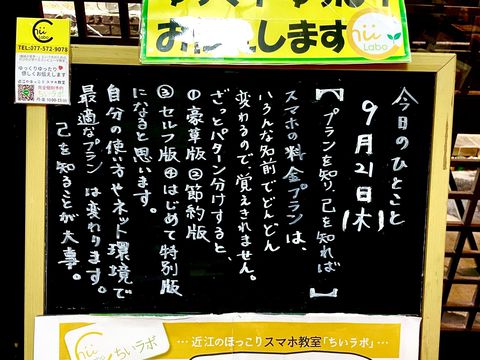 お伝えします
ちい
Labo
ちい
Labo
TEL:077-572-9078
ゆっくりゆったり
優しくお伝えします
近江のほっこり スマホ教室
完全個別予約
ちいラボ
今日のひとこと
9月21日(木)
【プランを知り、己を知れば】
スマホの料金プランは、
いろんな名前でどんどん
変わるので、覚えきれません。
ざっとパターン分けすると、
①豪華版②節約版
③セルフ版④はじめて特別版
になると思います。
自分の使い方やネット環境で
最適なプランは変わります。
己を知ることが大事。
…近江のほっこりスマホ教室「ちいラボ」…
ちいラボ